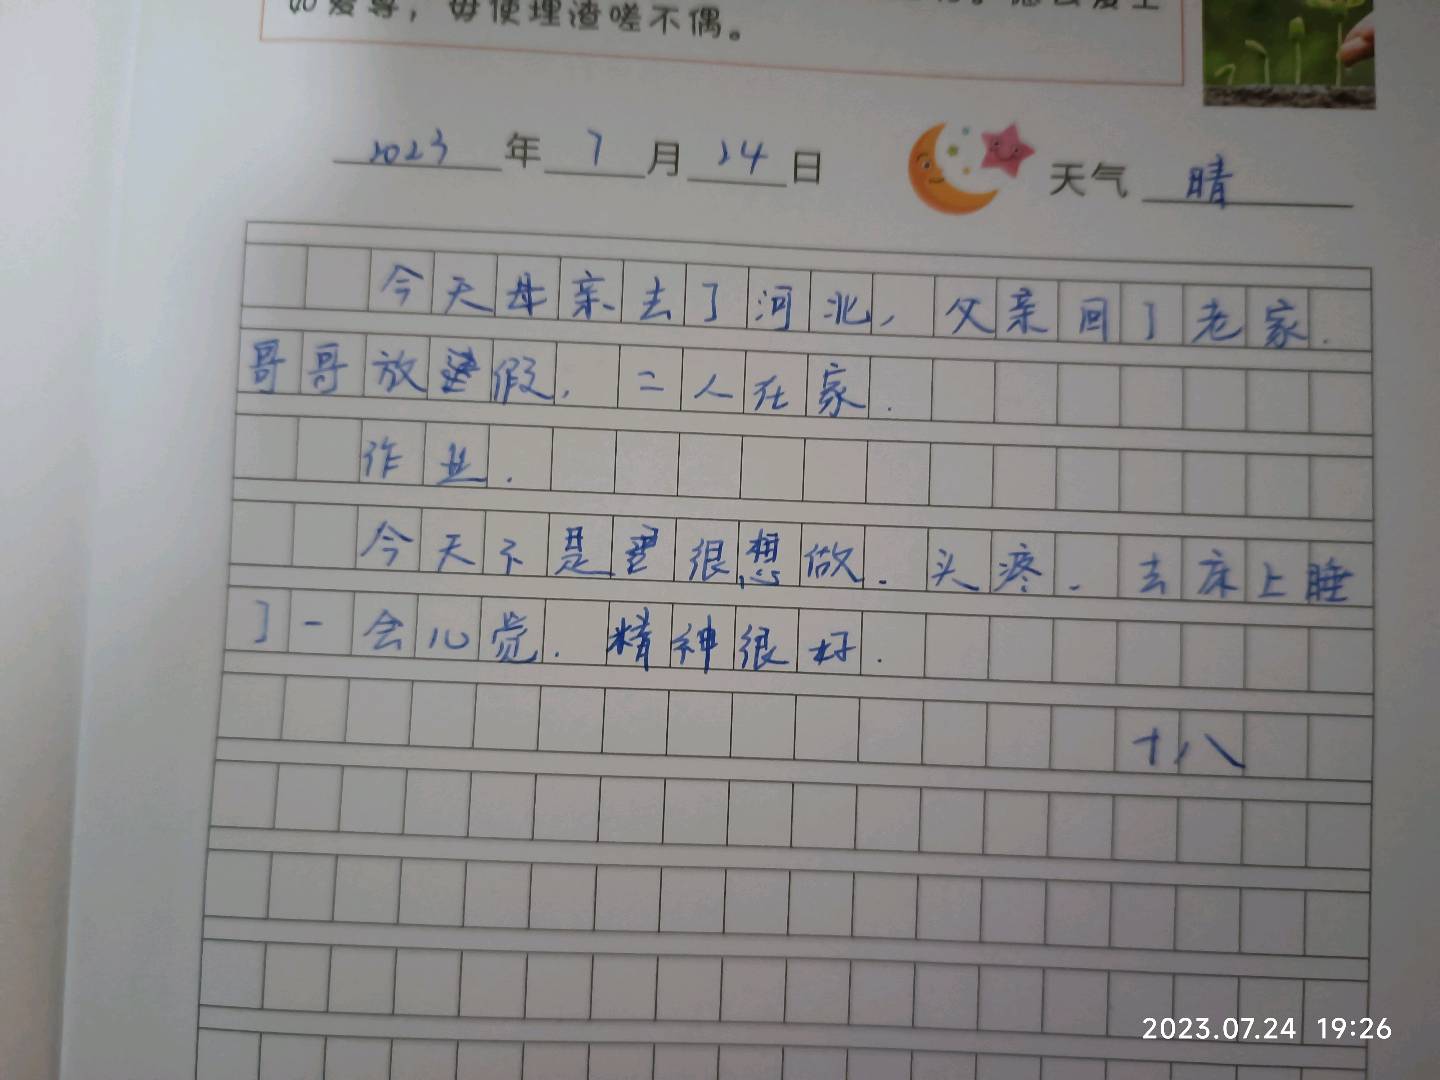 如爱尊，毋使理渣嗟不偶。
2023年7月24日 天气 晴
今天母亲去了河北，父亲回了老家.
哥哥放假，二人在家.
作业.
今天不是很想做.头疼.去床上睡
了一会儿觉.精神很好.
十八
2023.07.24 19:26